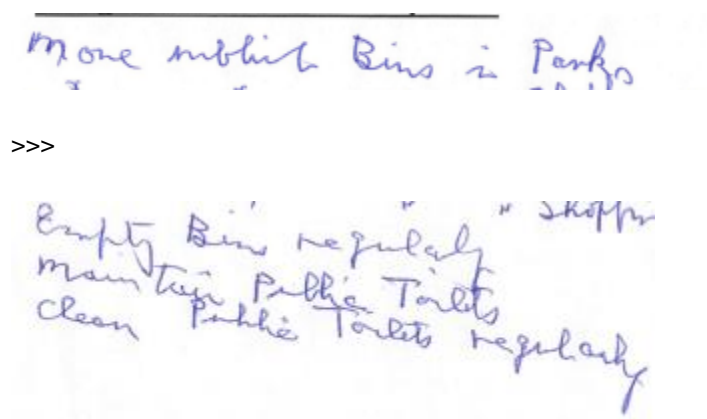 More rubbish Bins in Parks
>>>
" " Shoppin
Empty Bins regularly
Maintain Public Toilets
Clean Public Toilets regularly